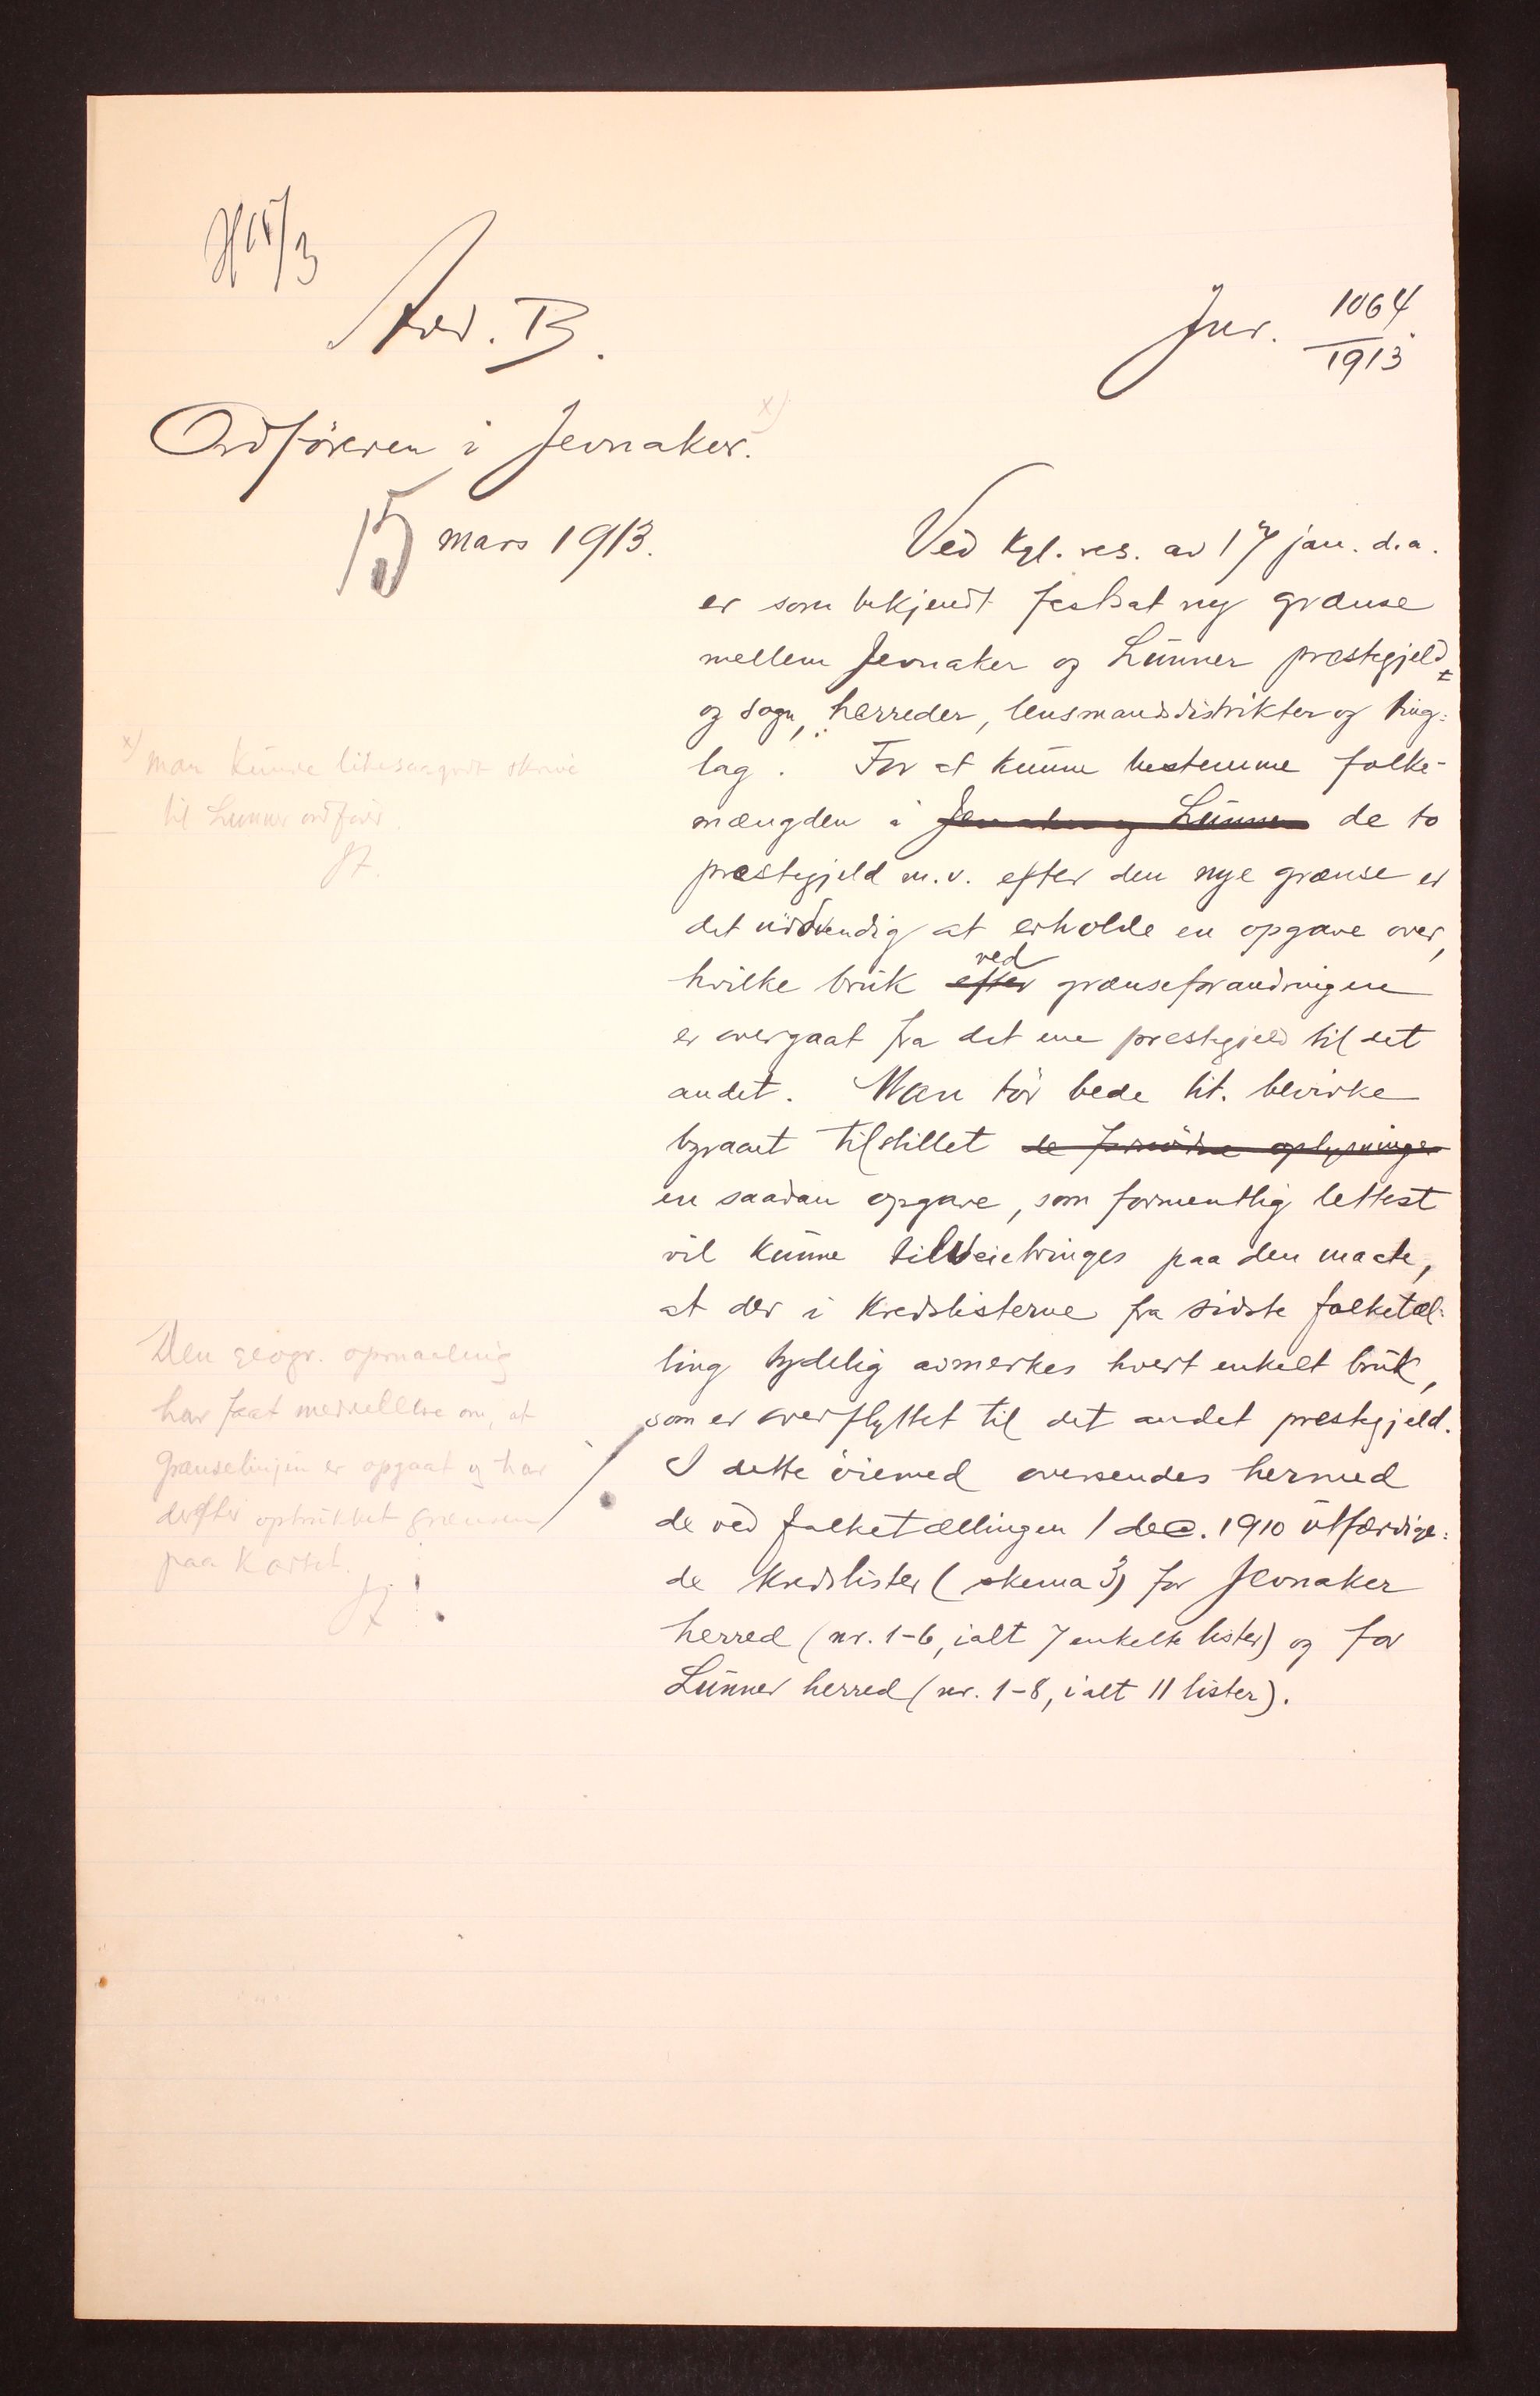 15/3
Avd. B.
Jnr. 1064/1913.
Ordföreren i Jevnaker. x)
15 mars 1913.
Ved kgl. res. av 17 jan. d.a.
er som bekjendt fastsat ny grænse
mellem Jevnaker og Lunner prestegjeld
og sogn, herreder, lensmandsdistrikter og ting-
lag. For at kunne bestemme folke-
mængden i Jevnaker og Lunner de to
prestegjeld m.v. efter den nye grænse er
det nödvendig at erholde en opgave over,
hvilke bruk efter ved grænseforandringen
er overgaat fra det ene prestegjeld til det
andet. Man tör bede tit. bevirke
byraaet tilstillet de fornödne oplysninger
en saadan opgave, som formentlig lettest
vil kunne tilveiebringes paa den maate,
at der i kredslisterne fra sidste folketæl-
ling tydelig avmerkes hvert enkelt bruk,
som er overflyttet til det andet prestegjeld.
I dette öiemed oversendes hermed
de ved folketællingen 1 dec. 1910 utfærdige-
de kredslister (skema 3) for Jevnaker
herred (nr. 1-6, ialt 7 enkelte lister) og for
Lunner herred (nr. 1-8, ialt 11 lister).
x) Man kunde likesaagodt skrive
til Lunner ordförer.
Den geogr. opmaaling
har faat meddelelse om, at
grænselinjen er opgaat og har
derefter optrukket grænsen
paa kartet.